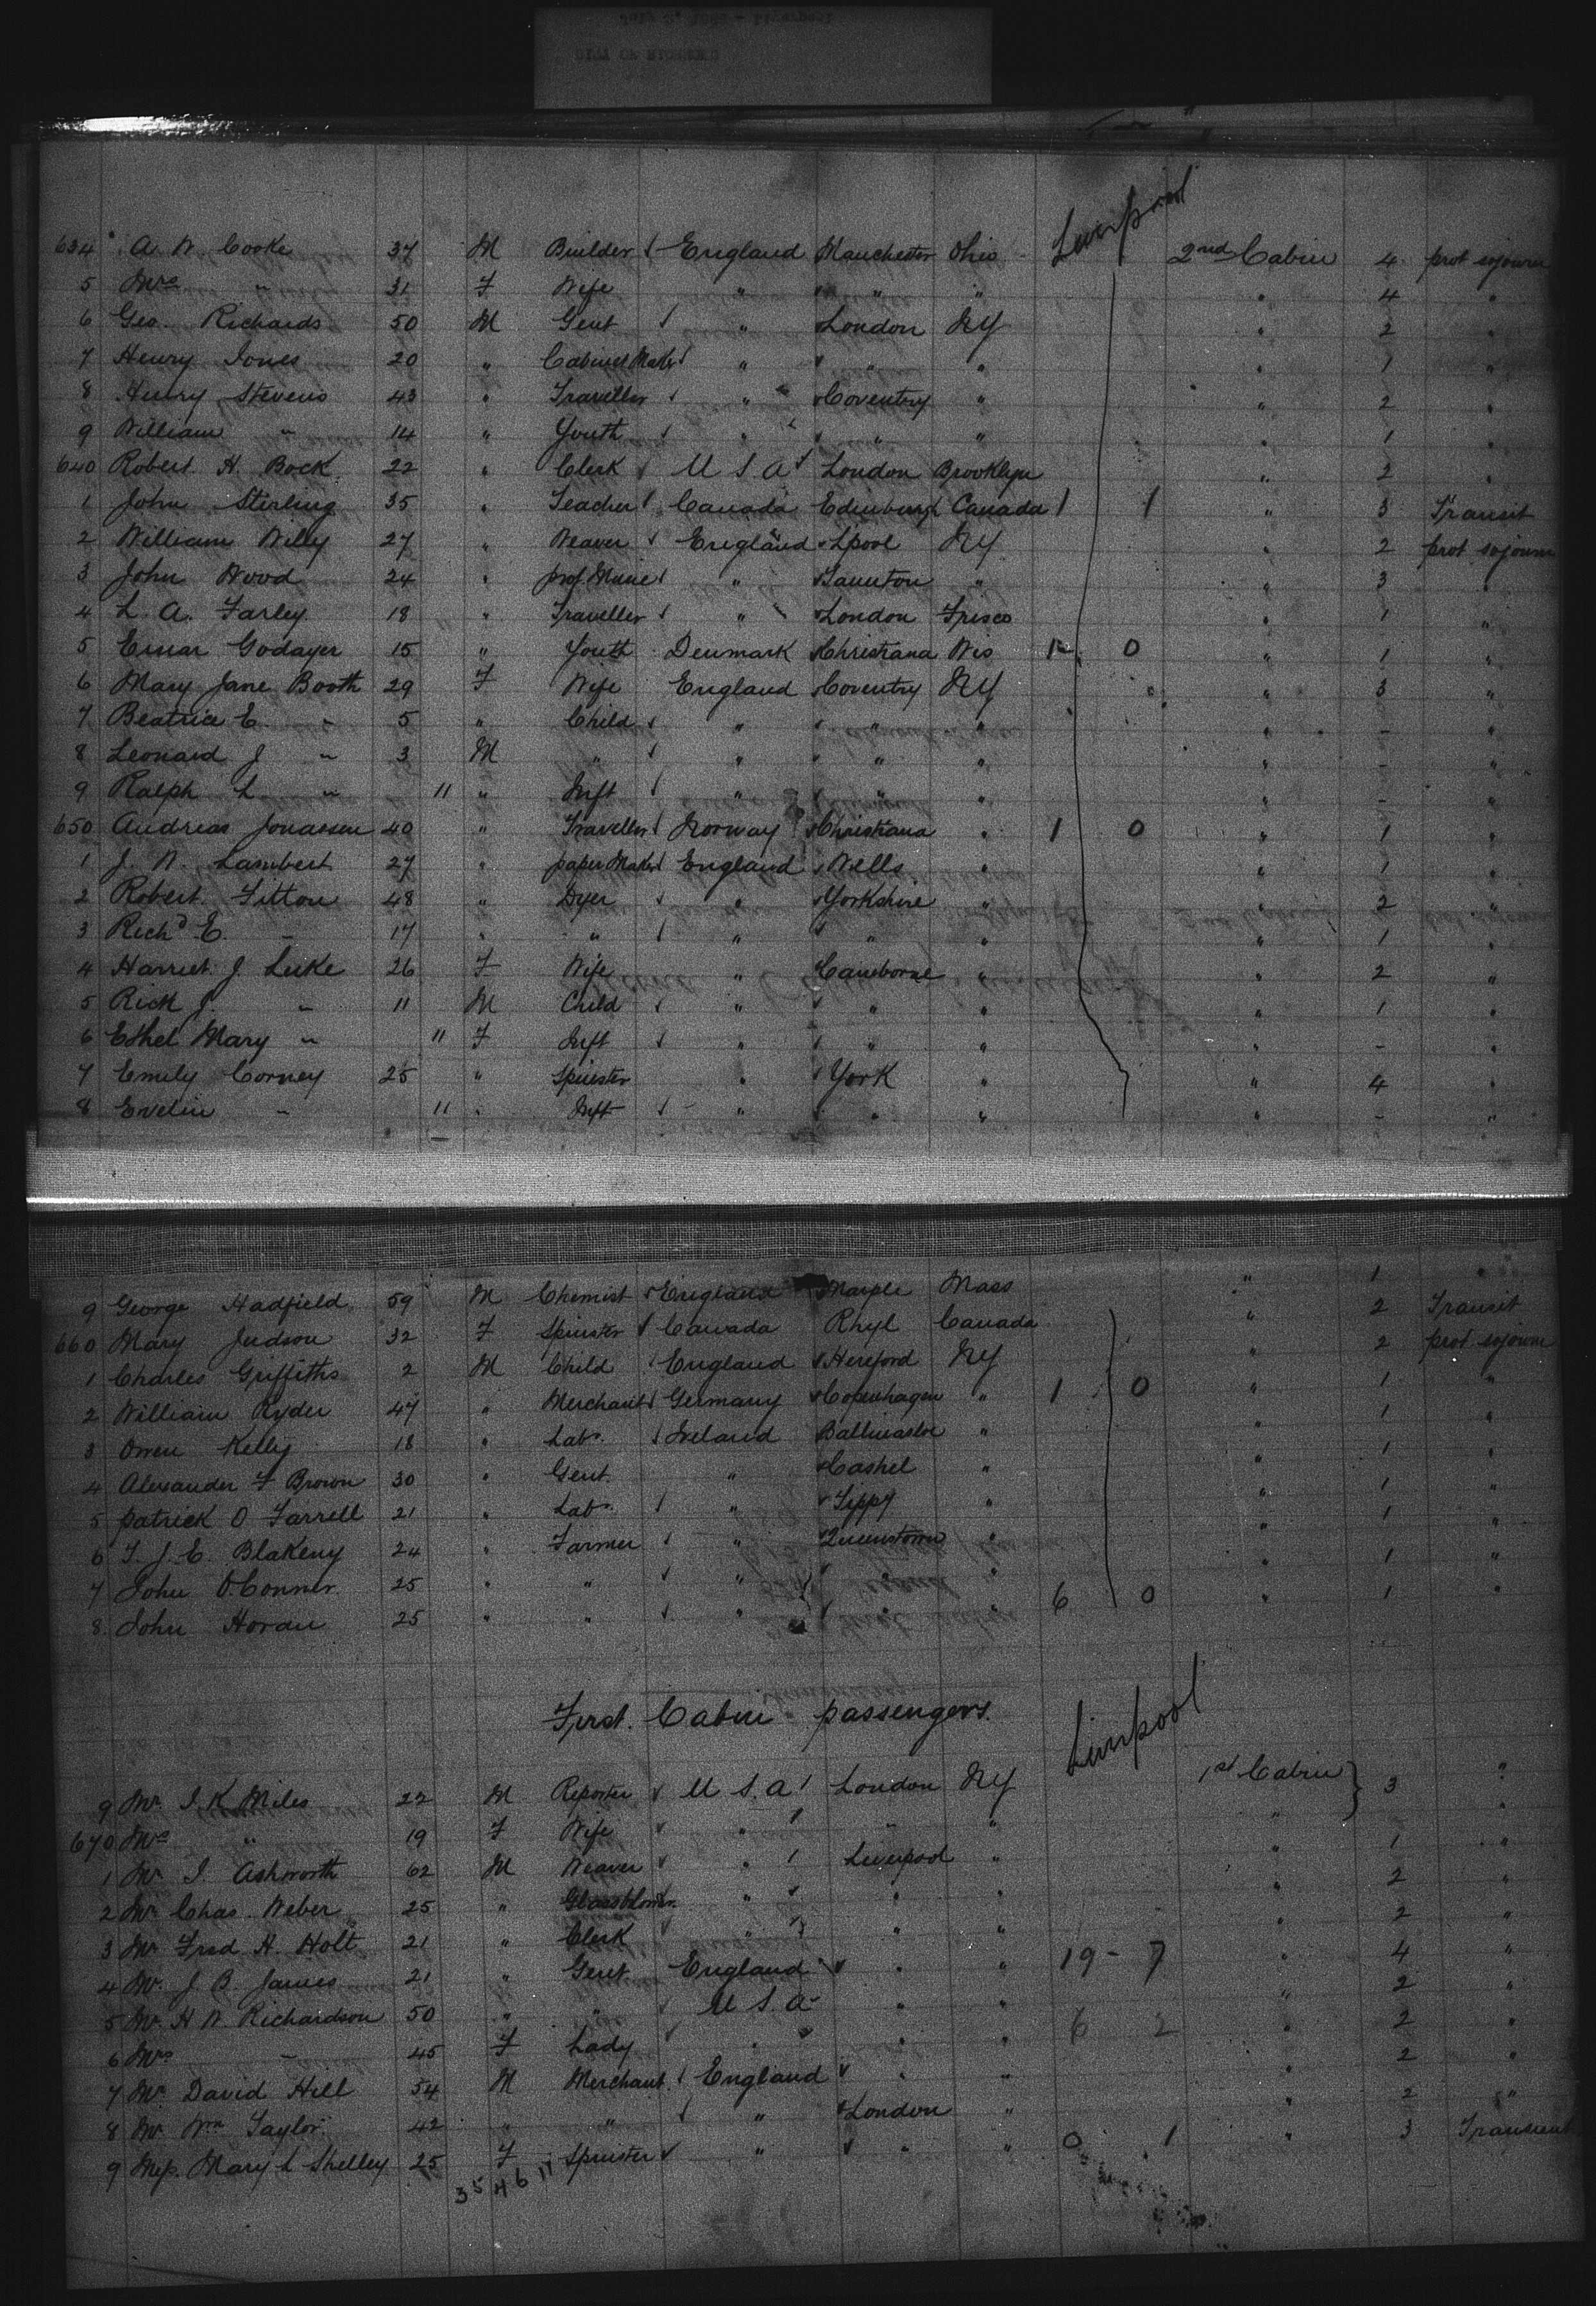 634 A. W. Cooke 37 M Builder England Manchester Ohio Liverpool 2nd Cabin 4 prot sojourn
5 Mrs " 31 F Wife " " " " 4 "
6 Geo. Richards 50 M Gent " London NY " 2 "
7 Henry Jones 20 " Cabinet Maker " " " " 1 "
8 Henry Stevens 43 " Traveller " Coventry " " 2 "
9 William " 14 " Youth " " " " 1 "
640 Robert H. Bock 22 " Clerk U S A London Brooklyn " 2 "
1 John Sterling 35 " Teacher Canada Edinburgh Canada 1 1 " 3 Transit
2 William Willy 27 " Weaver England Lpool NY " 2 prot sojourn
3 John Wood 24 " prof. Music " Taunton " " 3 "
4 L. A. Farley 18 " Traveller " London Frisco " 1 "
5 Einar Godager 15 " Youth Denmark Christiana Wis 1 0 " 1 "
6 Mary Jane Booth 29 F Wife England Coventry NY " 3 "
7 Beatrice E. " 5 " Child " " " " - "
8 Leonard J " 3 M " " " " " - "
9 Ralph L " 11 " Inft " " " " - "
650 Andreas Jonassen 40 " Traveller Norway Christiana " 1 0 " 1 "
1 J. W. Lambert 27 " paper Maker England Wells " " 1 "
2 Robert Fitton 48 " Dyer " Yorkshire " " 2 "
3 Richd E. " 17 " " " " " " 1 "
4 Harriet J. Luke 26 F Wife " Camborne " " 2 "
5 Rich J. " 11 M Child " " " " 1 "
6 Ethel Mary " 11 F Inft " " " " - "
7 Emily Corney 25 " Spinster " York " " 4 "
8 Evelin " 11 " Inft " " " " - "
9 George Hadfield 59 M Chemist England Marple Mass " 1 "
660 Mary Judson 32 F Spinster Canada Rhyl Canada " 2 Transit
1 Charles Griffiths 2 M Child England Hereford NY " 2 prot sojourn
2 William Ryder 47 " Merchant Germany Copenhagen " 1 0 " 1 "
3 Owen Kelly 18 " Labr. Ireland Ballinasloe " " 1 "
4 Alexander F Brown 30 " Gent. " Cashel " " 1 "
5 Patrick O Farrell 21 " Labr. " Tippy " " 1 "
6 T. J. E. Blakeny 24 " Farmer " Queenstown " " 1 "
7 John O'Connor 25 " " " " " " 1 "
8 John Horan 25 " " " " " 6 0 " 1 "
First Cabin passengers.
Liverpool
9 Mr. I. K Miles 22 M Reporter U S. A London NY 1st Cabin 3 "
670 Mrs " 19 F Wife " " " " "
1 Mr. I. Ashworth 62 M Weaver " Liverpool " " 1 "
2 Mr. Chas. Weber 25 " Glassblower " " " " 2 "
3 Mr. Fred H. Holt 21 " Clerk " " " " 2 "
4 Mr. J. B. James 21 " Gent. England " " 19 - 7 " 4 "
5 Mr. H W. Richardson 50 " " U S. A " " " 2 "
6 Mrs " 45 F Lady " " " 6 2 " 2 "
7 Mr. David Hill 54 M Merchant England " " " 2 "
8 Mr. Wm Taylor 42 " " " London " " 2 "
9 Miss. Mary L Shelley 25 F Spinster " " " 0 1 " 3 Transient
35 46 11